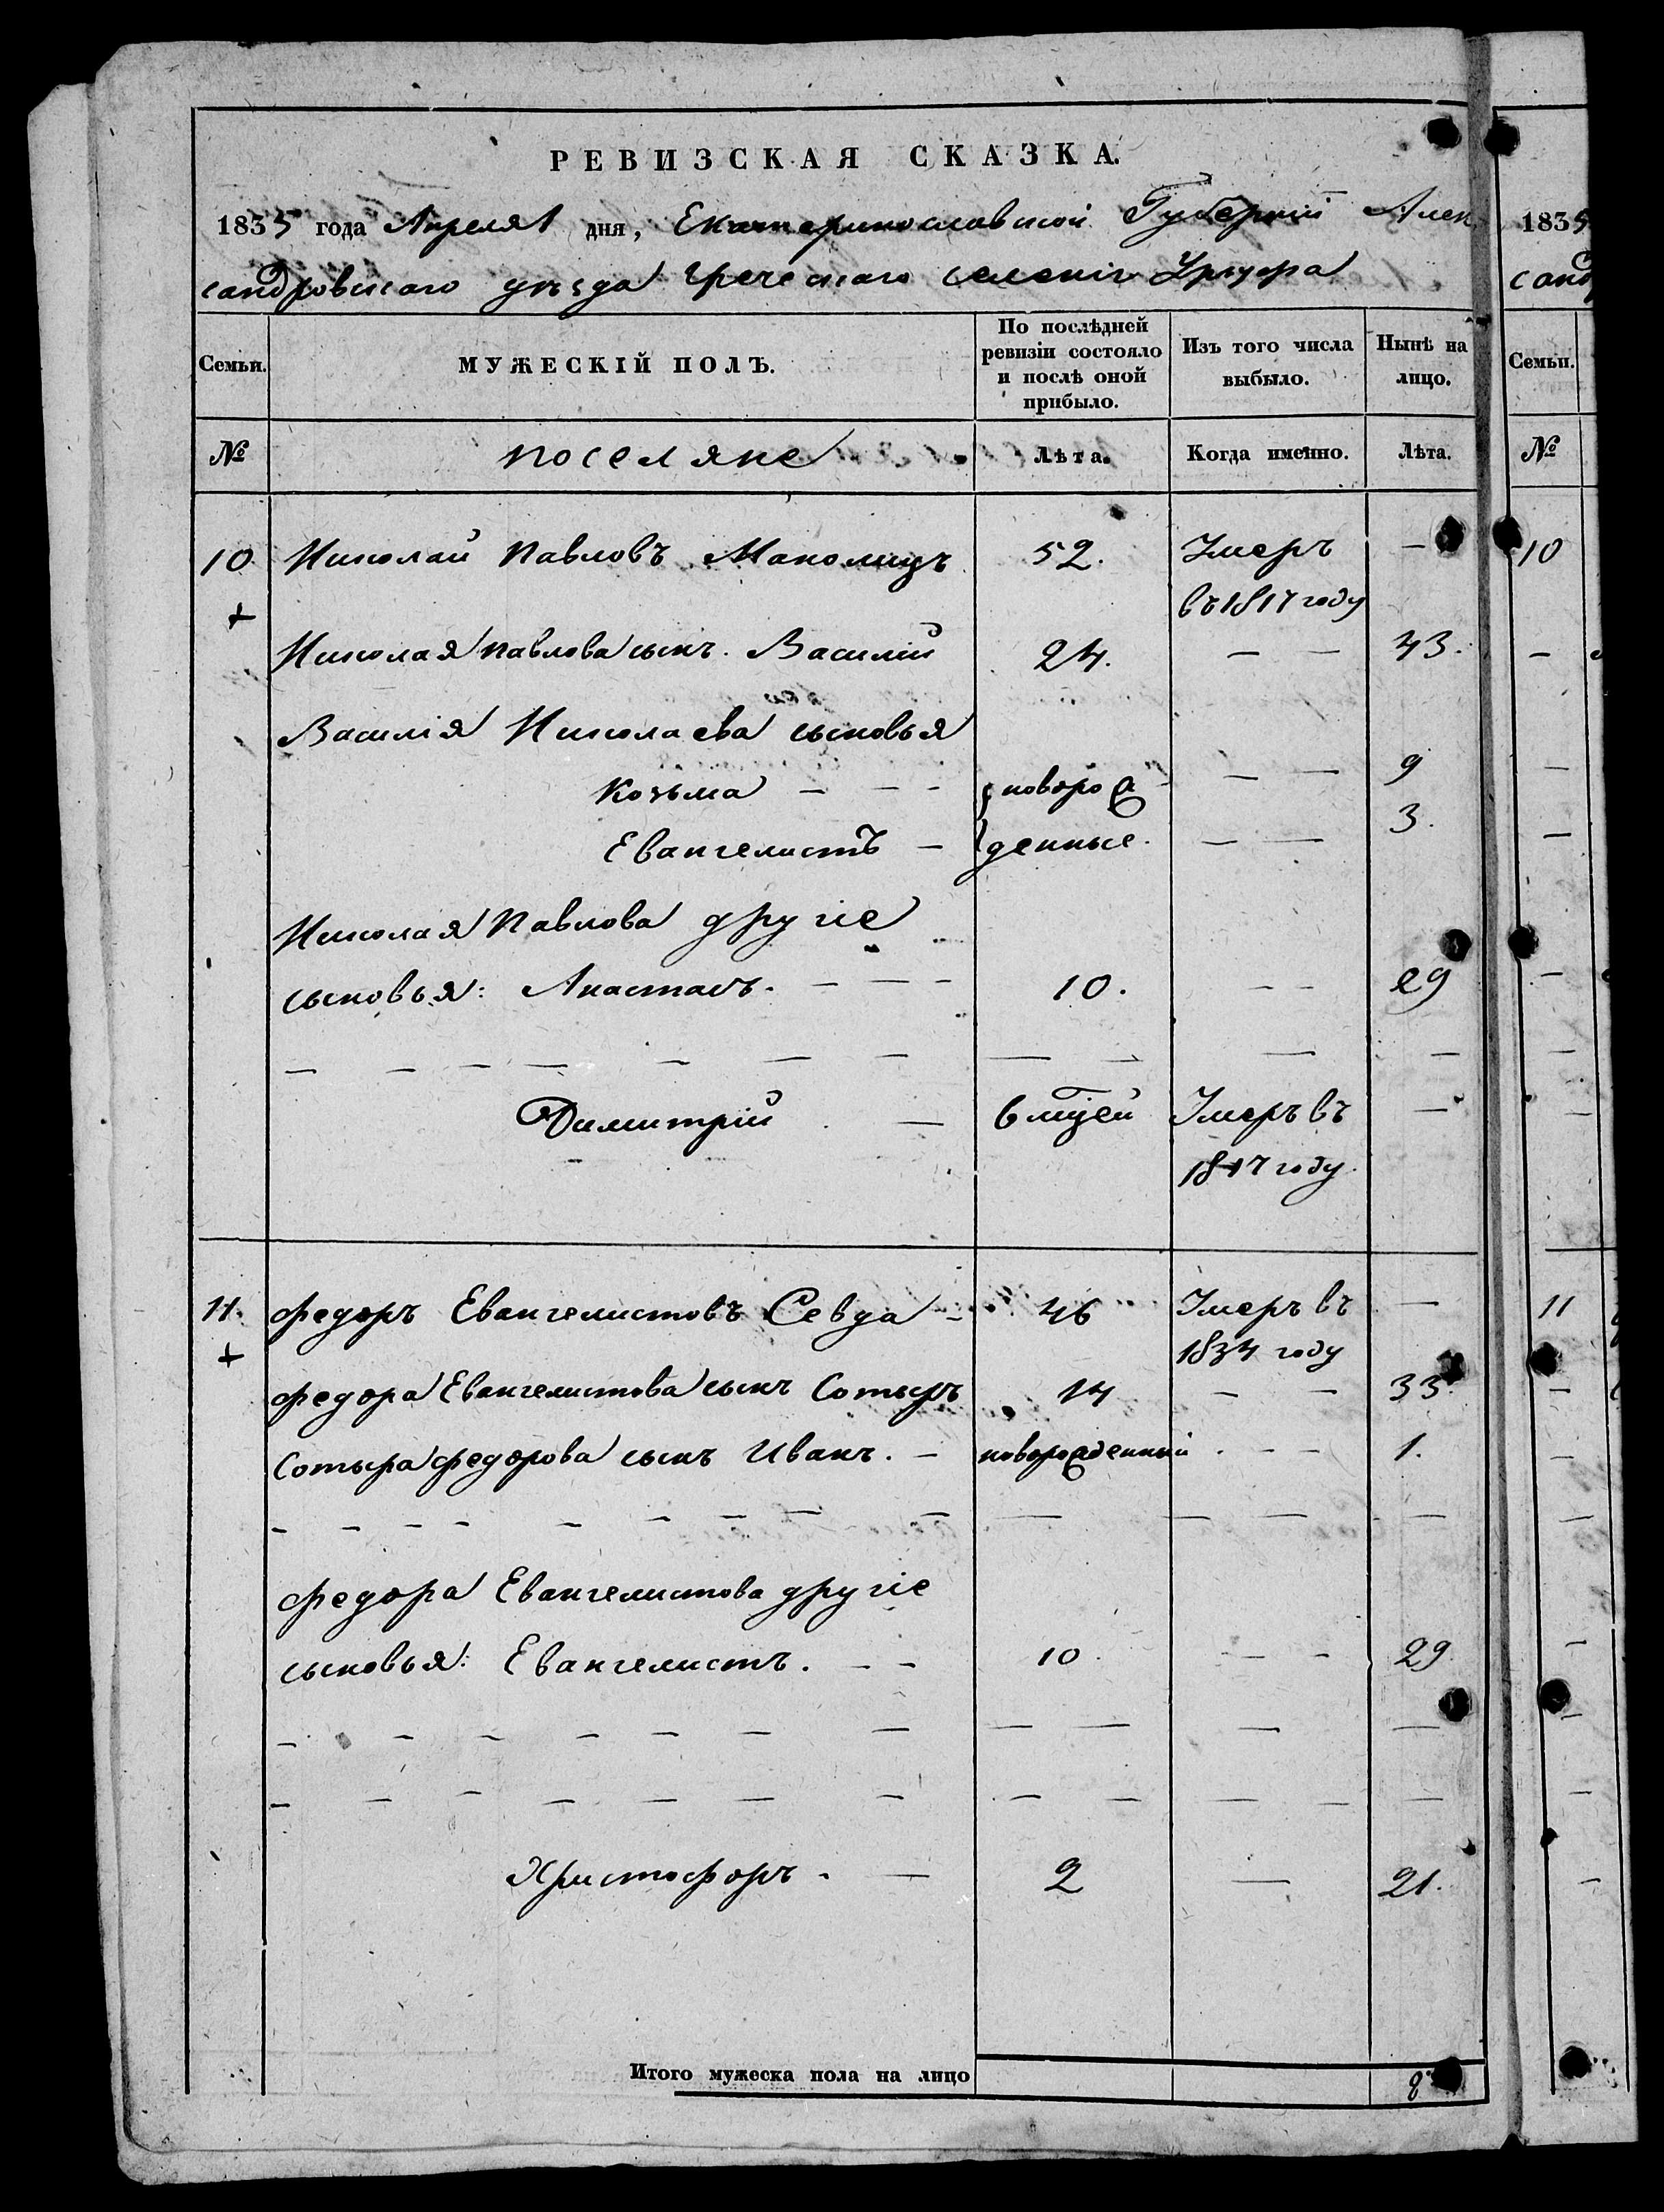 РЕВИЗСКАЯ СКАЗКА.
1835 года Апреля 1 дня, Екатеринославской Губернии Алек
сандровскаго уѣзда Греческаго селенія Урзуфа
Семьи. МУЖЕСКІЙ ПОЛЪ. По послѣдней ревизіи состояло и послѣ оной прибыло. Изъ того числа выбыло. Нынѣ на лицо.
№ поселяне Лѣта. Когда именно. Лѣта.
10 Николай Павловъ 52. Умеръ —
+ въ 1817 году
Николая Павлова сынъ. Василій 24. — — 43.
Василія Николаева сыновья
Козьма — — - новорож — — 9
Евангелистъ — денные. — — 3.
Николая Павлова другіе
сыновья: Анастасъ. — — — 10. — — 29
— — — — — — — — — — —
Димитрій — 6 мцей Умеръ въ —
1817 году.
11. Федоръ Евангелистовъ Севда - 46 Умеръ въ —
+ 1834 году
Федора Евангелистова сынъ Сотыръ 14 — — 33.
Сотыра Федорова сынъ Иванъ. — новорожденный . - — 1.
- - - - - - - — — — — — —
Федора Евангелистова другіе
сыновья: Евангелистъ. — - 10. — - 29.
- - - - - - — — — — —
- - - - - - - - — — - —
Христофоръ. — 2 — 21.
Итого мужеска пола на лицо 8
1835
санд
Семьи.
№
10
11